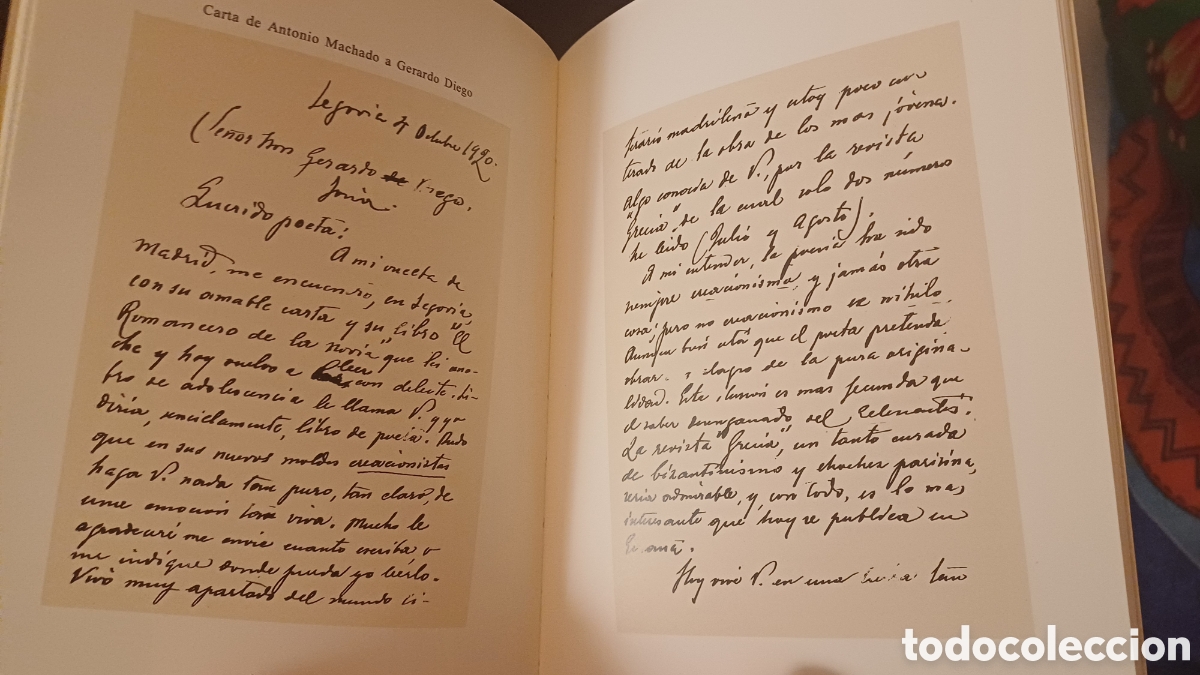 Carta de Antonio Machado a Gerardo Diego
Segovia 4 Octubre 1920.
Señor Don Gerardo de Diego.
Soria.
Querido poeta:
A mi vuelta de
Madrid, me encuentro, en Segovia,
con su amable carta y su libro "El
Romancero de la novia" que leí ano-
che y hoy vuelvo a leer con deleite. Li-
bro de adolescencia le llama V. y yo
diría, sencillamente, libro de poeta. Dudo
que en sus nuevos moldes creacionistas
haga V. nada tan puro, tan claro, de
una emoción tan viva. Mucho le
agradeceré me envíe cuanto escriba o
me indique donde pueda yo leerlo.
Vivo muy apartado del mundo li-
terario madrileño y estoy poco en-
terado de la obra de los mas jóvenes.
Algo conocía de V., por la revista
"Grecia" de la cual solo dos números
he leido (Julio y Agosto).
A mi entender, la poesía ha sido
siempre creacionismo, y jamás otra
cosa; pero no creacionismo ex nihilo.
Aunque bien está que el poeta pretenda
obrar el milagro de la pura origina-
lidad. Esta ilusión es mas fecunda que
el saber desengañado del Eclesiastés.
La revista "Grecia", un tanto curada
de bizantinismo y chochez parisina,
sería admirable, y con todo, es lo mas
interesante que hoy se publica en
España.
Hoy vive V. en una tan
todocoleccion